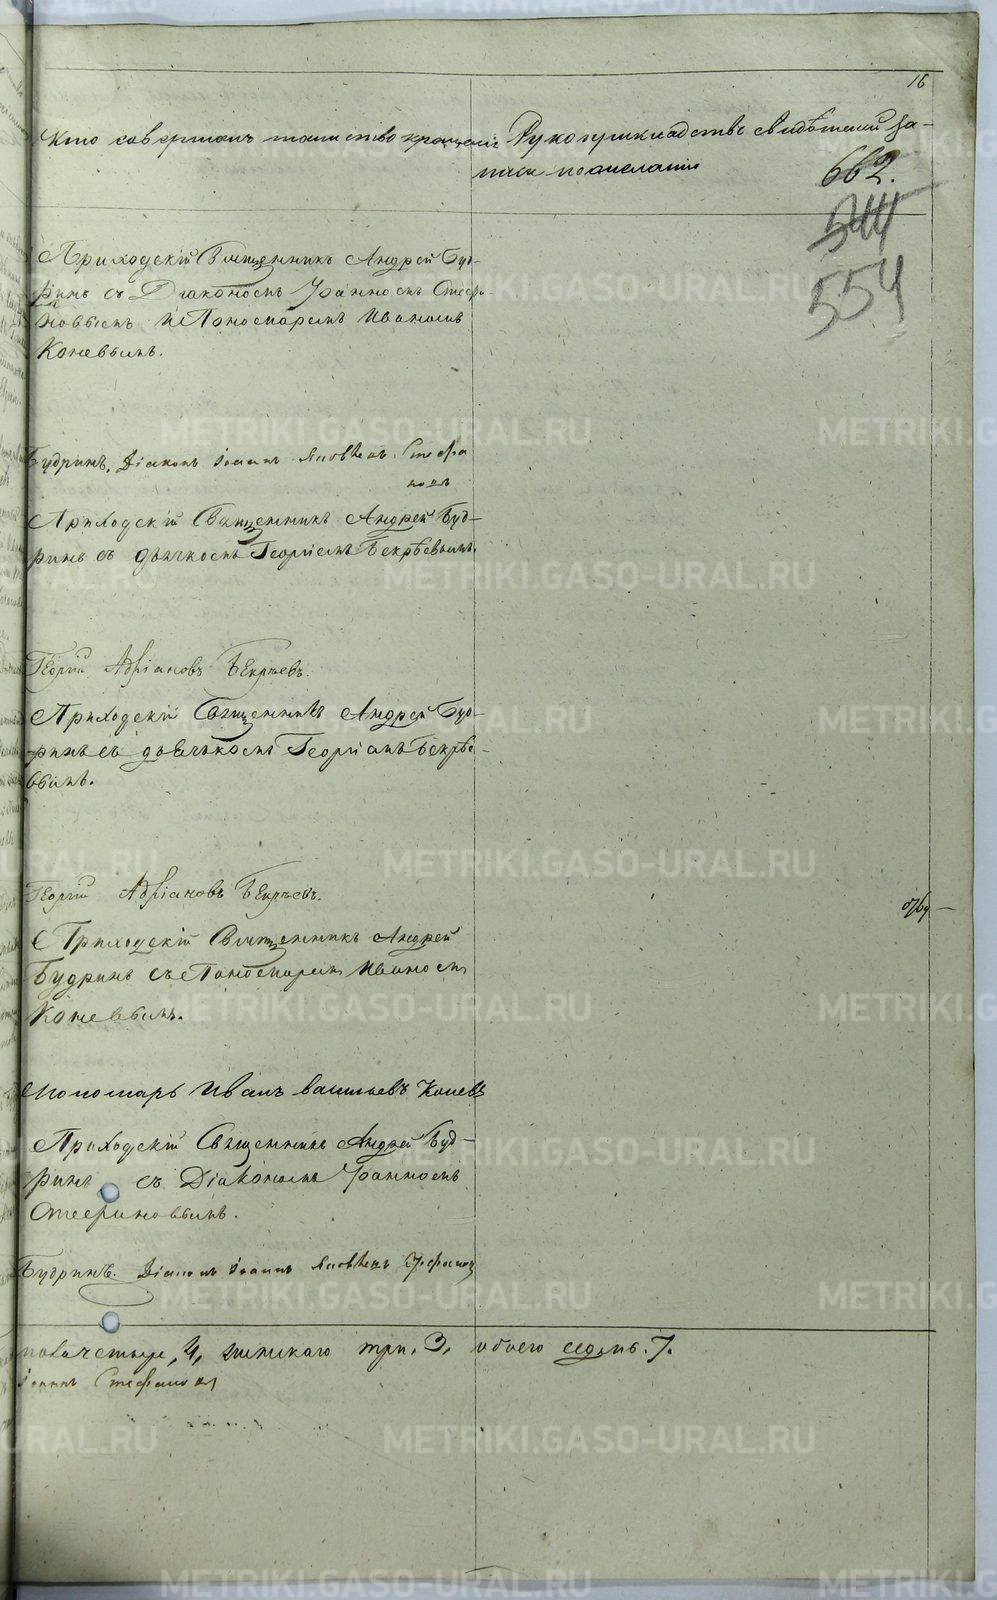 16
Кто совершалъ таинство крещенія
Рукоприкладство свидѣтелей за-
писи по желанію
662.
544
554
Приходскій Священникъ Андрей Буд-
ринъ съ Діакономъ Іоанномъ Стефа-
новымъ и Пономаремъ Иваномъ
Коневымъ.
Будринъ. Діаконъ Іоаннъ Яковлевъ Стефа
новъ
Приходскій Священникъ Андрей Буд-
ринъ съ дьячкомъ Георгіемъ Бекрѣевымъ.
Георгій Адріановъ Бекрѣевъ.
Приходскій Священникъ Андрей Буд-
ринъ съ дьячкомъ Георгіемъ Бекрѣе-
вымъ.
Георгій Адріановъ Бекрѣевъ.
Приходскій Священникъ Андрей
Будринъ съ Пономаремъ Иваномъ
Коневымъ.
Пономарь Иванъ Васильевъ Коневъ
Приходскій Священникъ Андрей Буд-
ринъ съ Діакономъ Іоанномъ
Стефановымъ.
Будринъ. Діаконъ Іоаннъ Яковлевъ Стефановъ
пола четыре, 4, женскаго три, 3, обоего седмь. 7.
Іоаннъ Стефановъ
METRIKI.GASO-URAL.RU